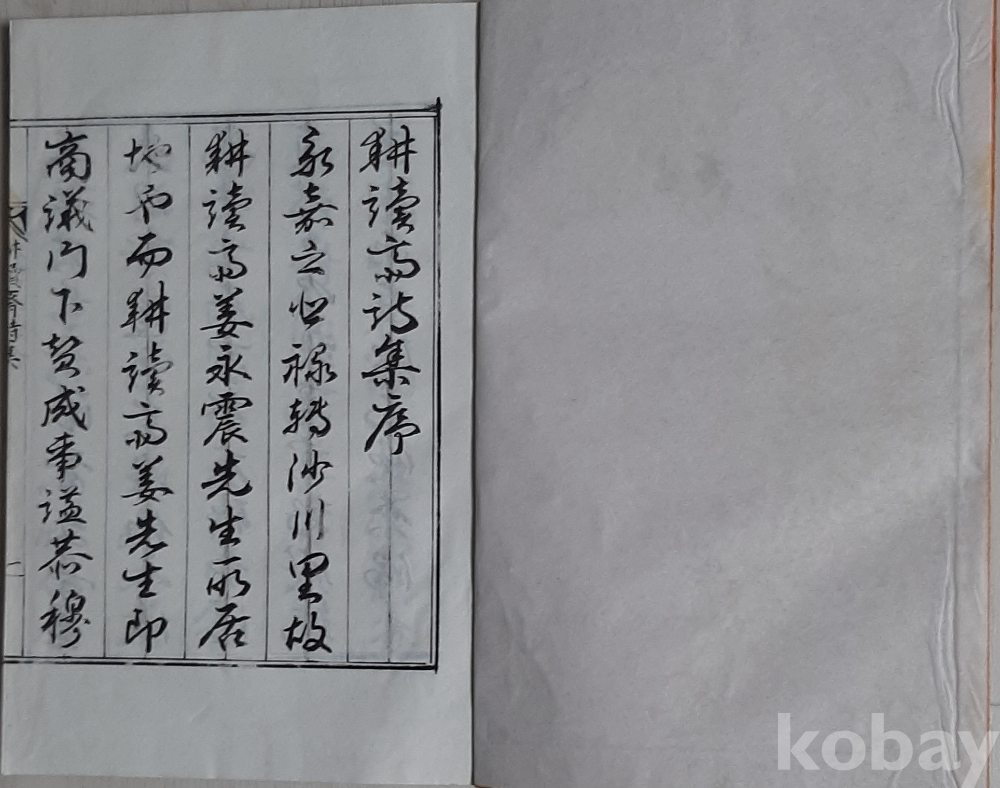 耕讀齋詩集序
永嘉之北祿轉沙川里故
耕讀齋姜永震先生所居
地也而耕讀齋姜先生即
商議門下贊成事諡恭穆
耕讀齋詩集
一
kobay